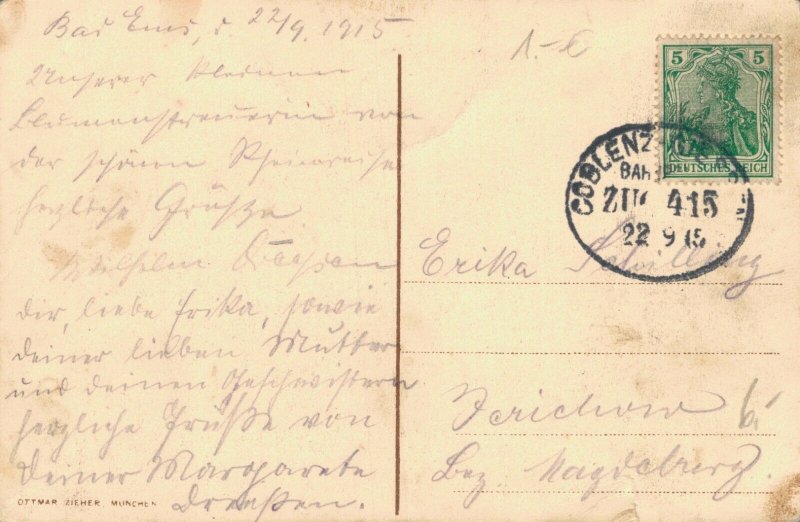 Bad Ems, d 22/9. 1915
Unserer kleinen
Blumenstreuerin von
der schönen Rheinreise
herzliche Grüße
Wilhelm
dir, liebe Erika, sowie
deiner lieben Mutter
und deinen Geschwistern
herzliche Grüße von
deiner Margarete
Dreesen.
OTTMAR ZIEHER MÜNCHEN
1.- €
5 5
DEUTSCHES REICH
COBLENZ
BAH
ZUG 415
22 9 15
Erika Schilling
Jerichow b.
Bez. Magdeburg.